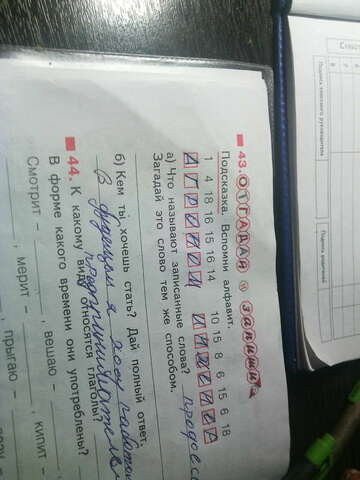 43. ОТГАДАЙ и запиши.
Подсказка. Вспомни алфавит.
1 4 18 16 15 16 14 10 15 8 6 15 6 18
АГРОНОМ ИНЖЕНЕР
а) Что называют записанные слова? професс
Загадай это слово тем же способом.
б) Кем ты хочешь стать? Дай полный ответ.
В будущем я хочу
44. К какому виду относятся глаголы?
В форме какого времени они употреблены?
Смотрит – , мерит – , вешаю – , кипит –
, прыгаю –
Подпись классного руководителя
Подпись родителей